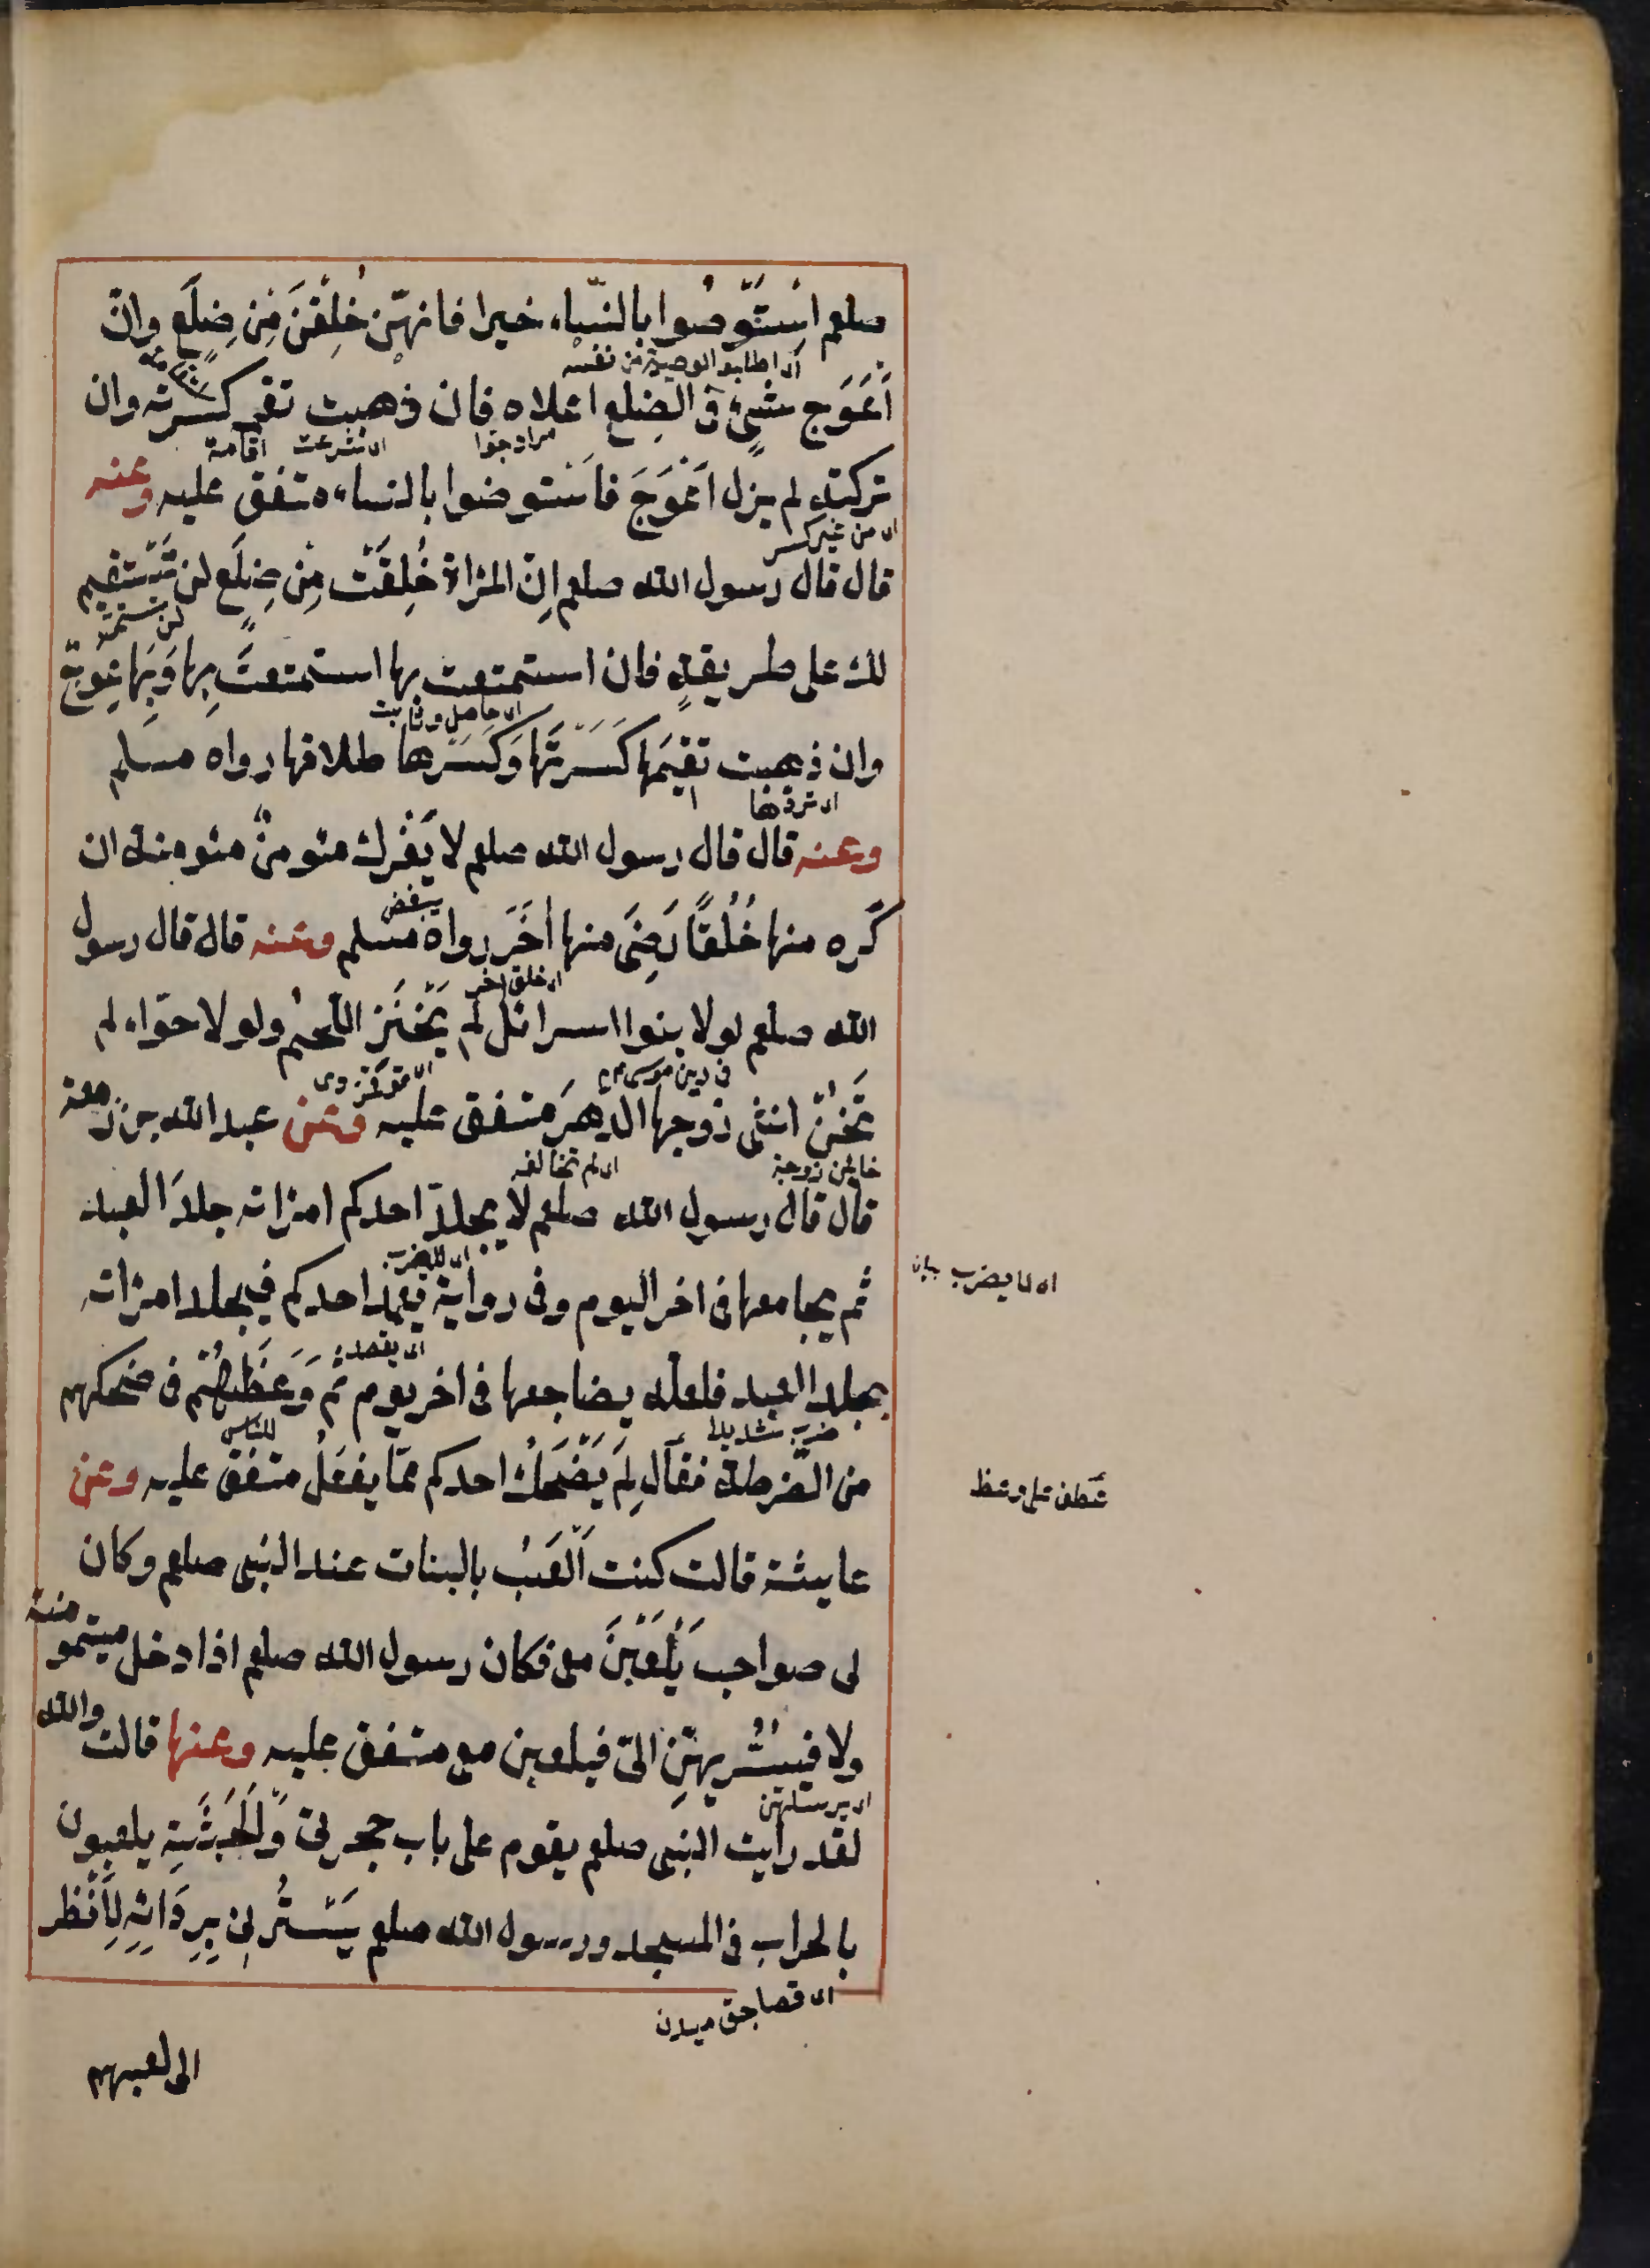 صلعم اسْتَوْصُوا بالنّساء خيرا فانهنّ خُلِقْنَ مِن ضِلَعٍ وانّ
اى اطلبوا الوصية من نفسه
اَعْوَج شىءٍ فى الضِلع اعلاه فان ذهبت تقم كسرته وان
اى شرعت اقامة
تركته لم يزل اَعْوَجَ فاَستوصوا بالنساء متفق عليه وعنه
اى من غير كسر
قال قال رسول الله صلعم اِنّ المرْاة خُلِقَتْ مِنْ ضِلَعٍ لن تَسْتقيم
لك على طريقةٍ فان استمتعت بها استمتعتَ بِها وَبِها عِوَجٌ
اى حاصل وثابت
وان ذهبت تقيمَها كَسَرْتَها وَكَسْرها طلاقها رواه مسلم
وعنه قال قال رسول الله صلعم لا يَفْرك مئومنٌ مئومنة ان
يبغض
كَره منها خُلُقًا رَضِىَ منها اٰخَرَ رواه مسلم وعنه قال قال رسول
اى خلق اخر
الله صلعم لولا بنوا اسرائل لم يَخْنَز اللّحمُ ولولا حوّاء لم
فى دين موسى عم
تَخُنْ انثى زوجها الدّهرَ متفق عليه وعن عبد الله بن زمعة
اى لم تخالفه
قال قال رسول الله صلعم لا يجلدْ احدكم امرْاته جلدَ العبد
ثم يجامعها فى اخر اليوم وفى رواية يعمد احدكم فيجلد امرْاته
اى يقصد
يجلد العبد فلعلّه يضاجعها فى اخر يوم ثم وَعَظَهُمْ فى ضحكهم
ضرب شديد
للناس
من الضرطة فقال لِمَ يَضْحَكُ احدكم ممّا يفعَلُ متفق عليه وعن
عطف على وعظ
عايشة قالت كنت اَلْعَبُ بالبنات عند النّبى صلعم وكان
لى صواحب يَلْعَبْنَ معى فكان رسول الله صلعم اذا دخل
ولا فيسُرّبهنِّ الىّ فيلعبن معى متفق عليه وعنها قالت والله
اى يرسلهن
لقد رأيت النّبى صلعم يقوم على باب حجرتى وَالْحَبَشَة يلعبون
بالحراب فى المسجد ورسول الله صلعم يَسْتُرنى بِرِدَائِهِ لِاَنْظر
الى لعبهم